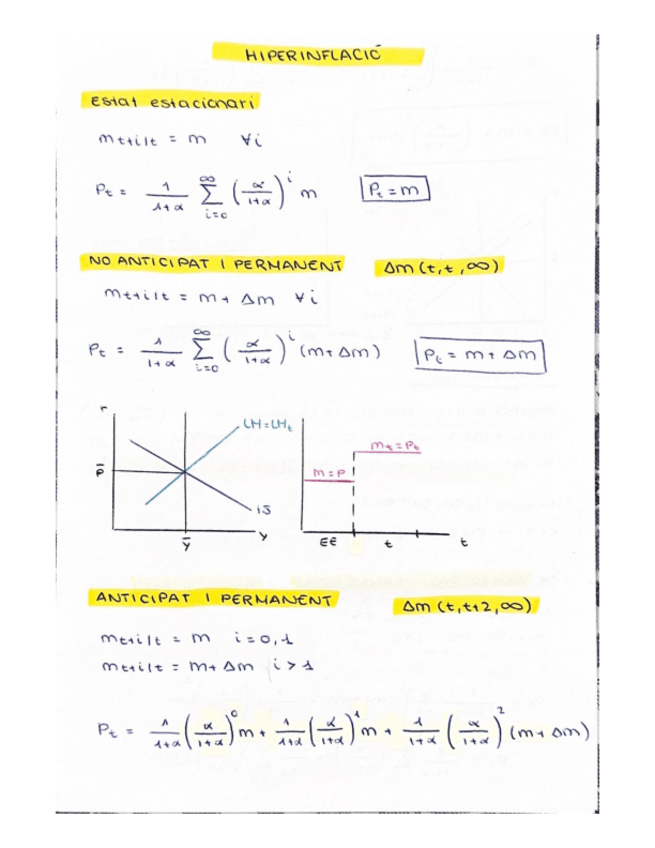 HIPERINFLACIÓ
Estat estacionari
m_{t+i/t} = m ∀i
P_t = \frac{1}{1+α} \sum_{i=0}^{∞} (\frac{α}{1+α})^i m P_t = m
NO ANTICIPAT I PERMANENT Δm (t, t, ∞)
m_{t+i/t} = m + Δm ∀i
P_t = \frac{1}{1+α} \sum_{i=0}^{∞} (\frac{α}{1+α})^i (m + Δm) P_t = m + Δm
r
LM = LM_t
m_t = P_t
m = P
IS
y
ȳ
EE t t
ANTICIPAT I PERMANENT Δm (t, t+2, ∞)
m_{t+i/t} = m i = 0, 1
m_{t+i/t} = m + Δm i > 1
P_t = \frac{1}{1+α} (\frac{α}{1+α})^0 m + \frac{1}{1+α} (\frac{α}{1+α})^1 m + \frac{1}{1+α} (\frac{α}{1+α})^2 (m + Δm)